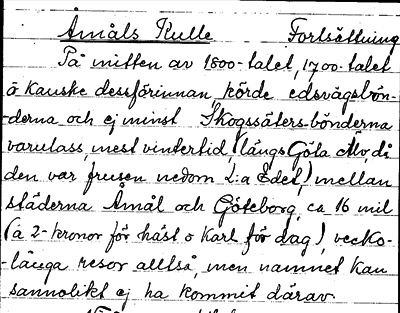 Åmåls Kulle Fortsättning
På mitten av 1800-talet, 1700-talet
o kanske dessförinnan, körde edsvägsbön-
derna och ej minst Skogssäters-bönderna
varulass, mest vintertid, (längs Göta Älv, då
den var frusen nedom L:a Edet,) mellan
städerna Åmål och Göteborg, ca 16 mil
(à 2-kronor för häst o karl för dag), vecko-
långa resor alltså, men namnet kan
sannolikt ej ha kommit därav